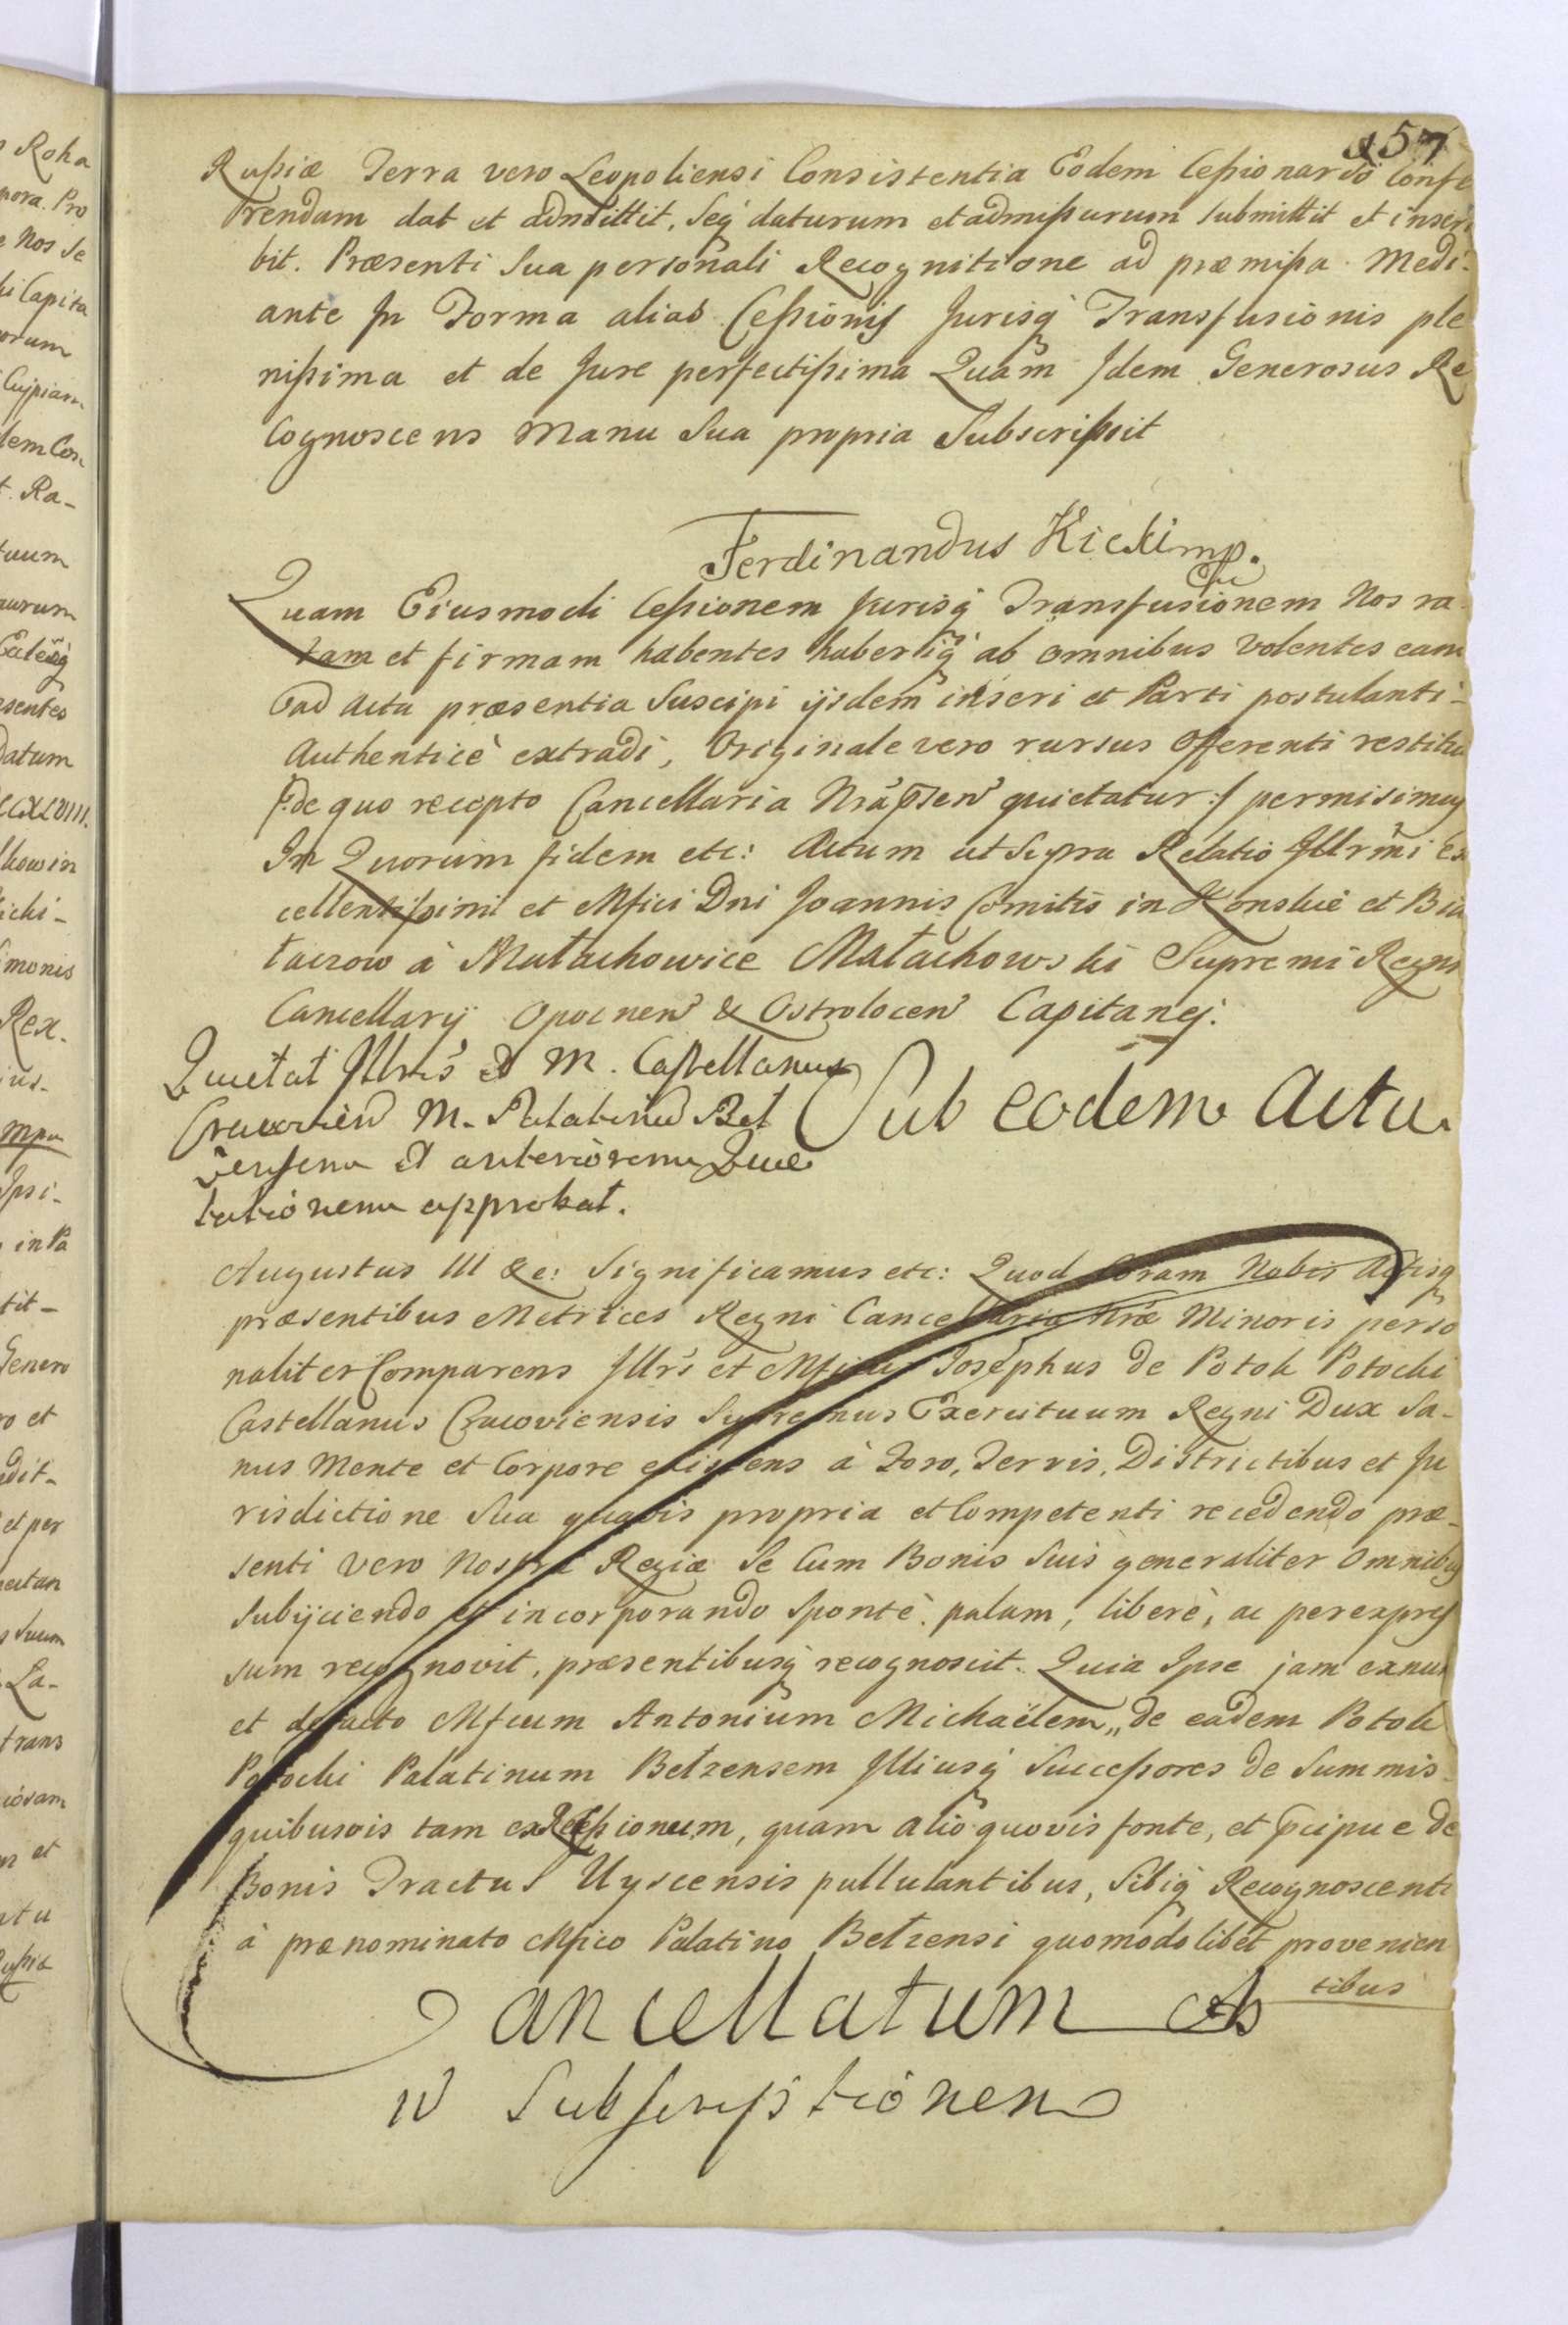 157
Rußiæ Terra vero Leopoliensi Consistentia Eodem Ceßionario Confe
rendam dat et admittit, Seq́ daturum et admißurum submittit et inscri
bit. Præsenti Sua personali Recognitione ad præmißa Medi-
ante In Forma alias Ceßionis Jurisq́ Transfusionis ple
nißima et de Jure perfectißima Quam Idem Generosus Re
Cognoscens Manu Sua propria Subscripsit
Ferdinandus Kicki mp.
Quam Eiusmodi Ceßionem Jurisq́ Transfusionem Nos ra
tam et firmam habentes haberiq́ ab omnibus Volentes eam
ad Acta præsentia Suscipi ijsdem inseri et Parti postulanti
Authenticè extradi, Originale vero rursus Offerenti restitui
/: de quo recepto Cancellaria Nra pñsen quietatur :/ permisimus
In Quorum fidem etc: Actum ut Supra Relatio Illrmi Ex
cellentißimi et Mfici Dni Joannis Comitis in Konskie et Bia
łaczow à Małachowice Małachowski Supremi Regni
Cancellarij Opocnen & Ostrolocen Capitanej.
Quietat Illris et M. Castellanus
Cracovien M. Palatinum Bel
zensem et anteriorem Quie
tationem approbat.
Sub eodem Actu.
Augustus III &c: Significamus etc: Quod Coram Nobis Actisq́
præsentibus Metrices Regni Cancellariæ Nræ Minoris perso
naliter Comparens Illrs et Mficus Josephus de Potok Potocki
Castellanus Cracoviensis Supremus Exercituum Regni Dux Sa-
nus Mente et Corpore existens à Foro, Terris, Districtibus et Ju
risdictione Sua quavis propria et Competenti recedendo præ-
senti vero Nostræ Regiæ Se Cum Bonis Suis generaliter Omnibus
Subijciendo et incorporando Sponte, palam, liberè, ac per expres
sum recognovit, præsentibusq́ recognoscit. Quia Ipse jam exnunc
et defacto Mficum Antonium Michaëlem de eadem Potok
Potocki Palatinum Belzensem Illiusq́ Succeßores de Summis
quibusvis tam ex Ceßionum, quam alio quovis fonte, et præcipue de
Bonis Tractus Uyscensis pullulantibus, Sibiq́ Recognoscenti
à prænominato Mfico Palatino Belzensi quomodolibet provenien
tibus
Cancellatum ob
Subscriptionem